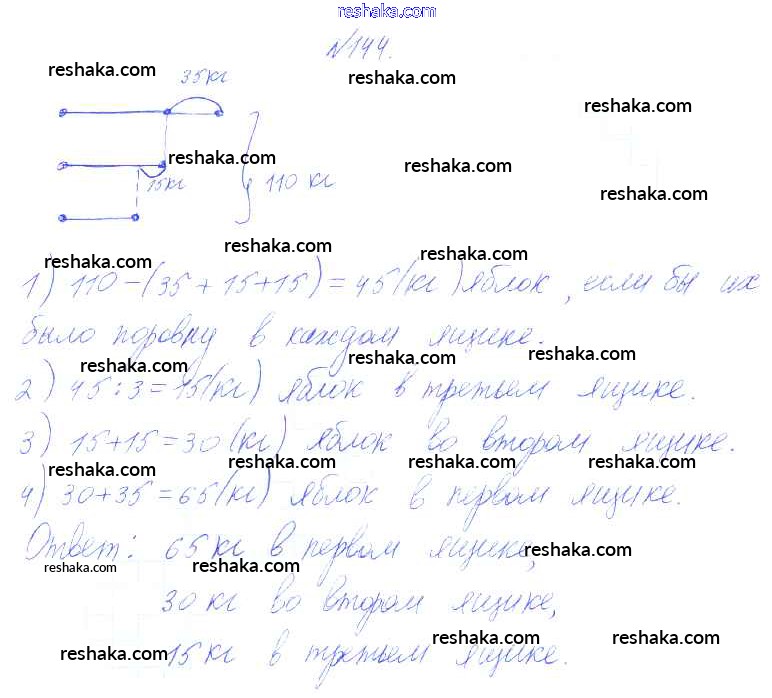 reshaka.com
№144.
reshaka.com 35кг reshaka.com
reshaka.com
reshaka.com reshaka.com
15кг 110 кг reshaka.com
reshaka.com reshaka.com reshaka.com
1) 110-(35+15+15)=45(кг) яблок, если бы их
было поровну в каждом ящике.
reshaka.com reshaka.com reshaka.com
2) 45:3=15(кг) яблок в третьем ящике.
3) 15+15=30(кг) яблок во втором ящике.
reshaka.com reshaka.com reshaka.com reshaka.com
4) 30+35=65(кг) яблок в первом ящике.
Ответ: 65кг в первом ящике,
reshaka.com reshaka.com reshaka.com
30 кг во втором ящике,
reshaka.com reshaka.com reshaka.com
15 кг в третьем ящике.